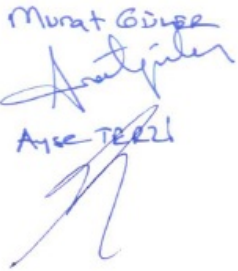 Murat GÜLER
Ayşe TERZİ